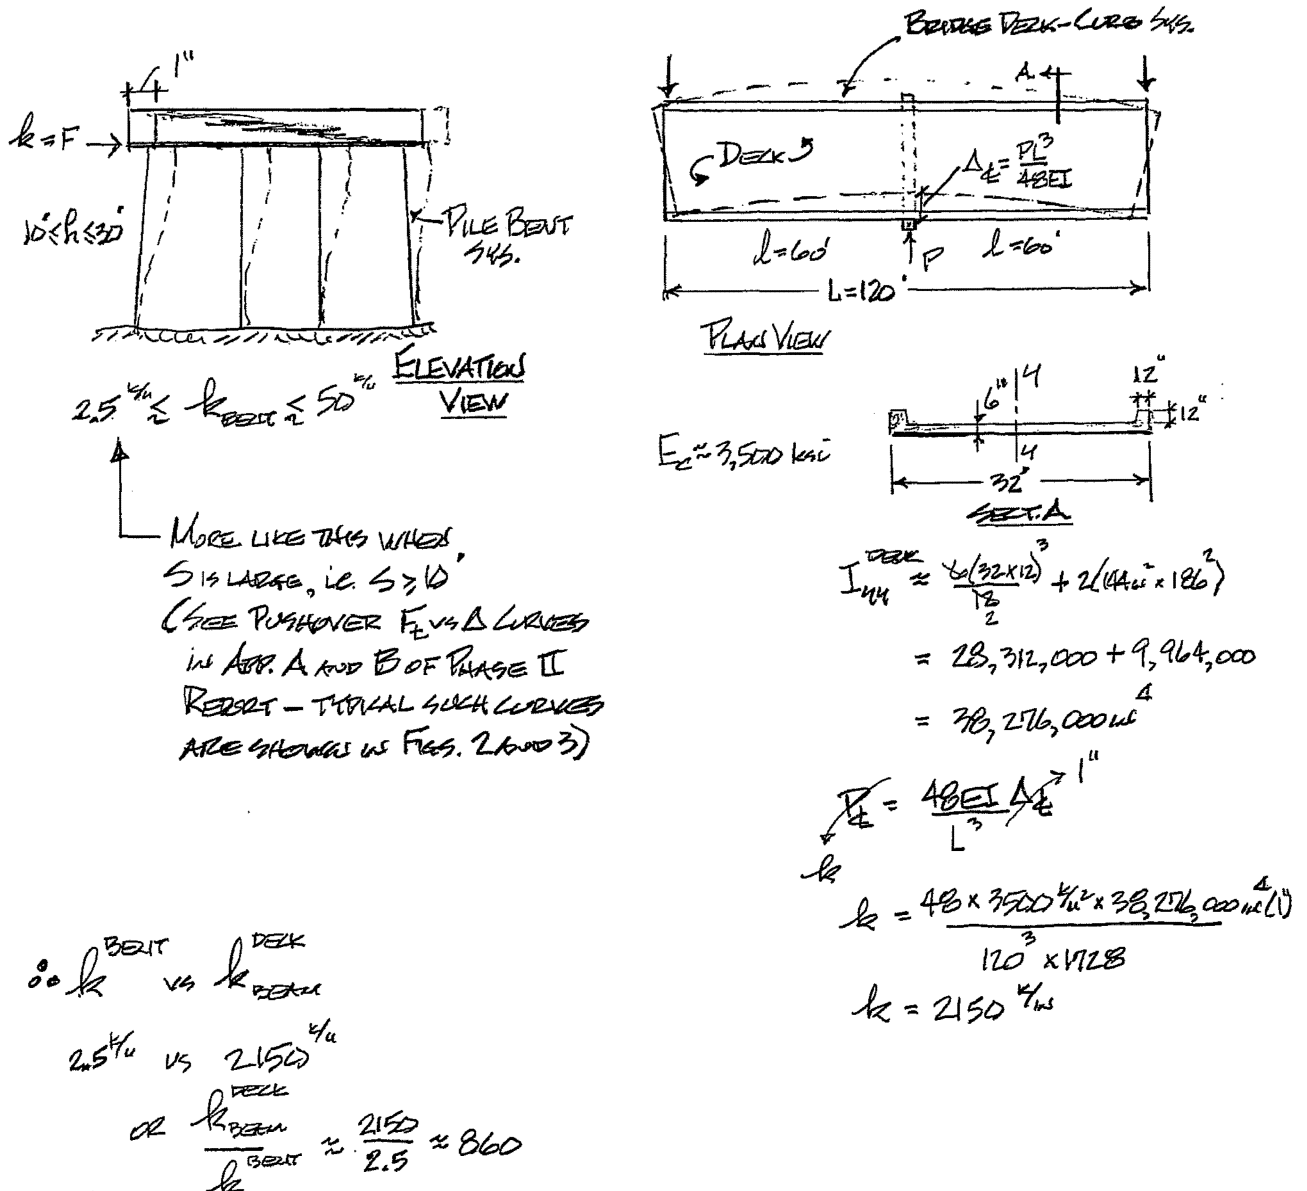 1"
k = F →
10' ≤ h ≤ 30'
PILE BENT
SYS.
ELEVATION
VIEW
2.5 k/" ≲ k BENT ≲ 50 k/"
MORE LIKE THIS WHEN
S IS LARGE, i.e. S ≥ 10'
(SEE PUSHOVER Ft VS Δ CURVES
IN APP. A AND B OF PHASE II
REPORT – TYPICAL SUCH CURVES
ARE SHOWN IN FIGS. 2 AND 3)
∴ k BENT vs k DECK BEAM
2.5 k/" vs 2150 k/"
OR k DECK BEAM / k BENT ≈ 2150 / 2.5 ≈ 860
BRIDGE DECK-CURB SYS.
A
DECK
Δ℄ = PL³ / 48EI
l = 60'
P
l = 60'
L = 120'
PLAN VIEW
6"
4
12"
12"
Ec ≈ 3,500 ksi
4
32'
SECT. A
I 44 DECK ≈ 6(32x12)³ / 12 + 2(144 in² x 186²)
2
= 28,312,000 + 9,964,000
= 38,276,000 in⁴
P℄ = 48EI / L³ Δ℄ 1"
k
k = 48 x 3500 k/"² x 38,276,000 in⁴ (1") / 120³ x 1728
k = 2150 k/in